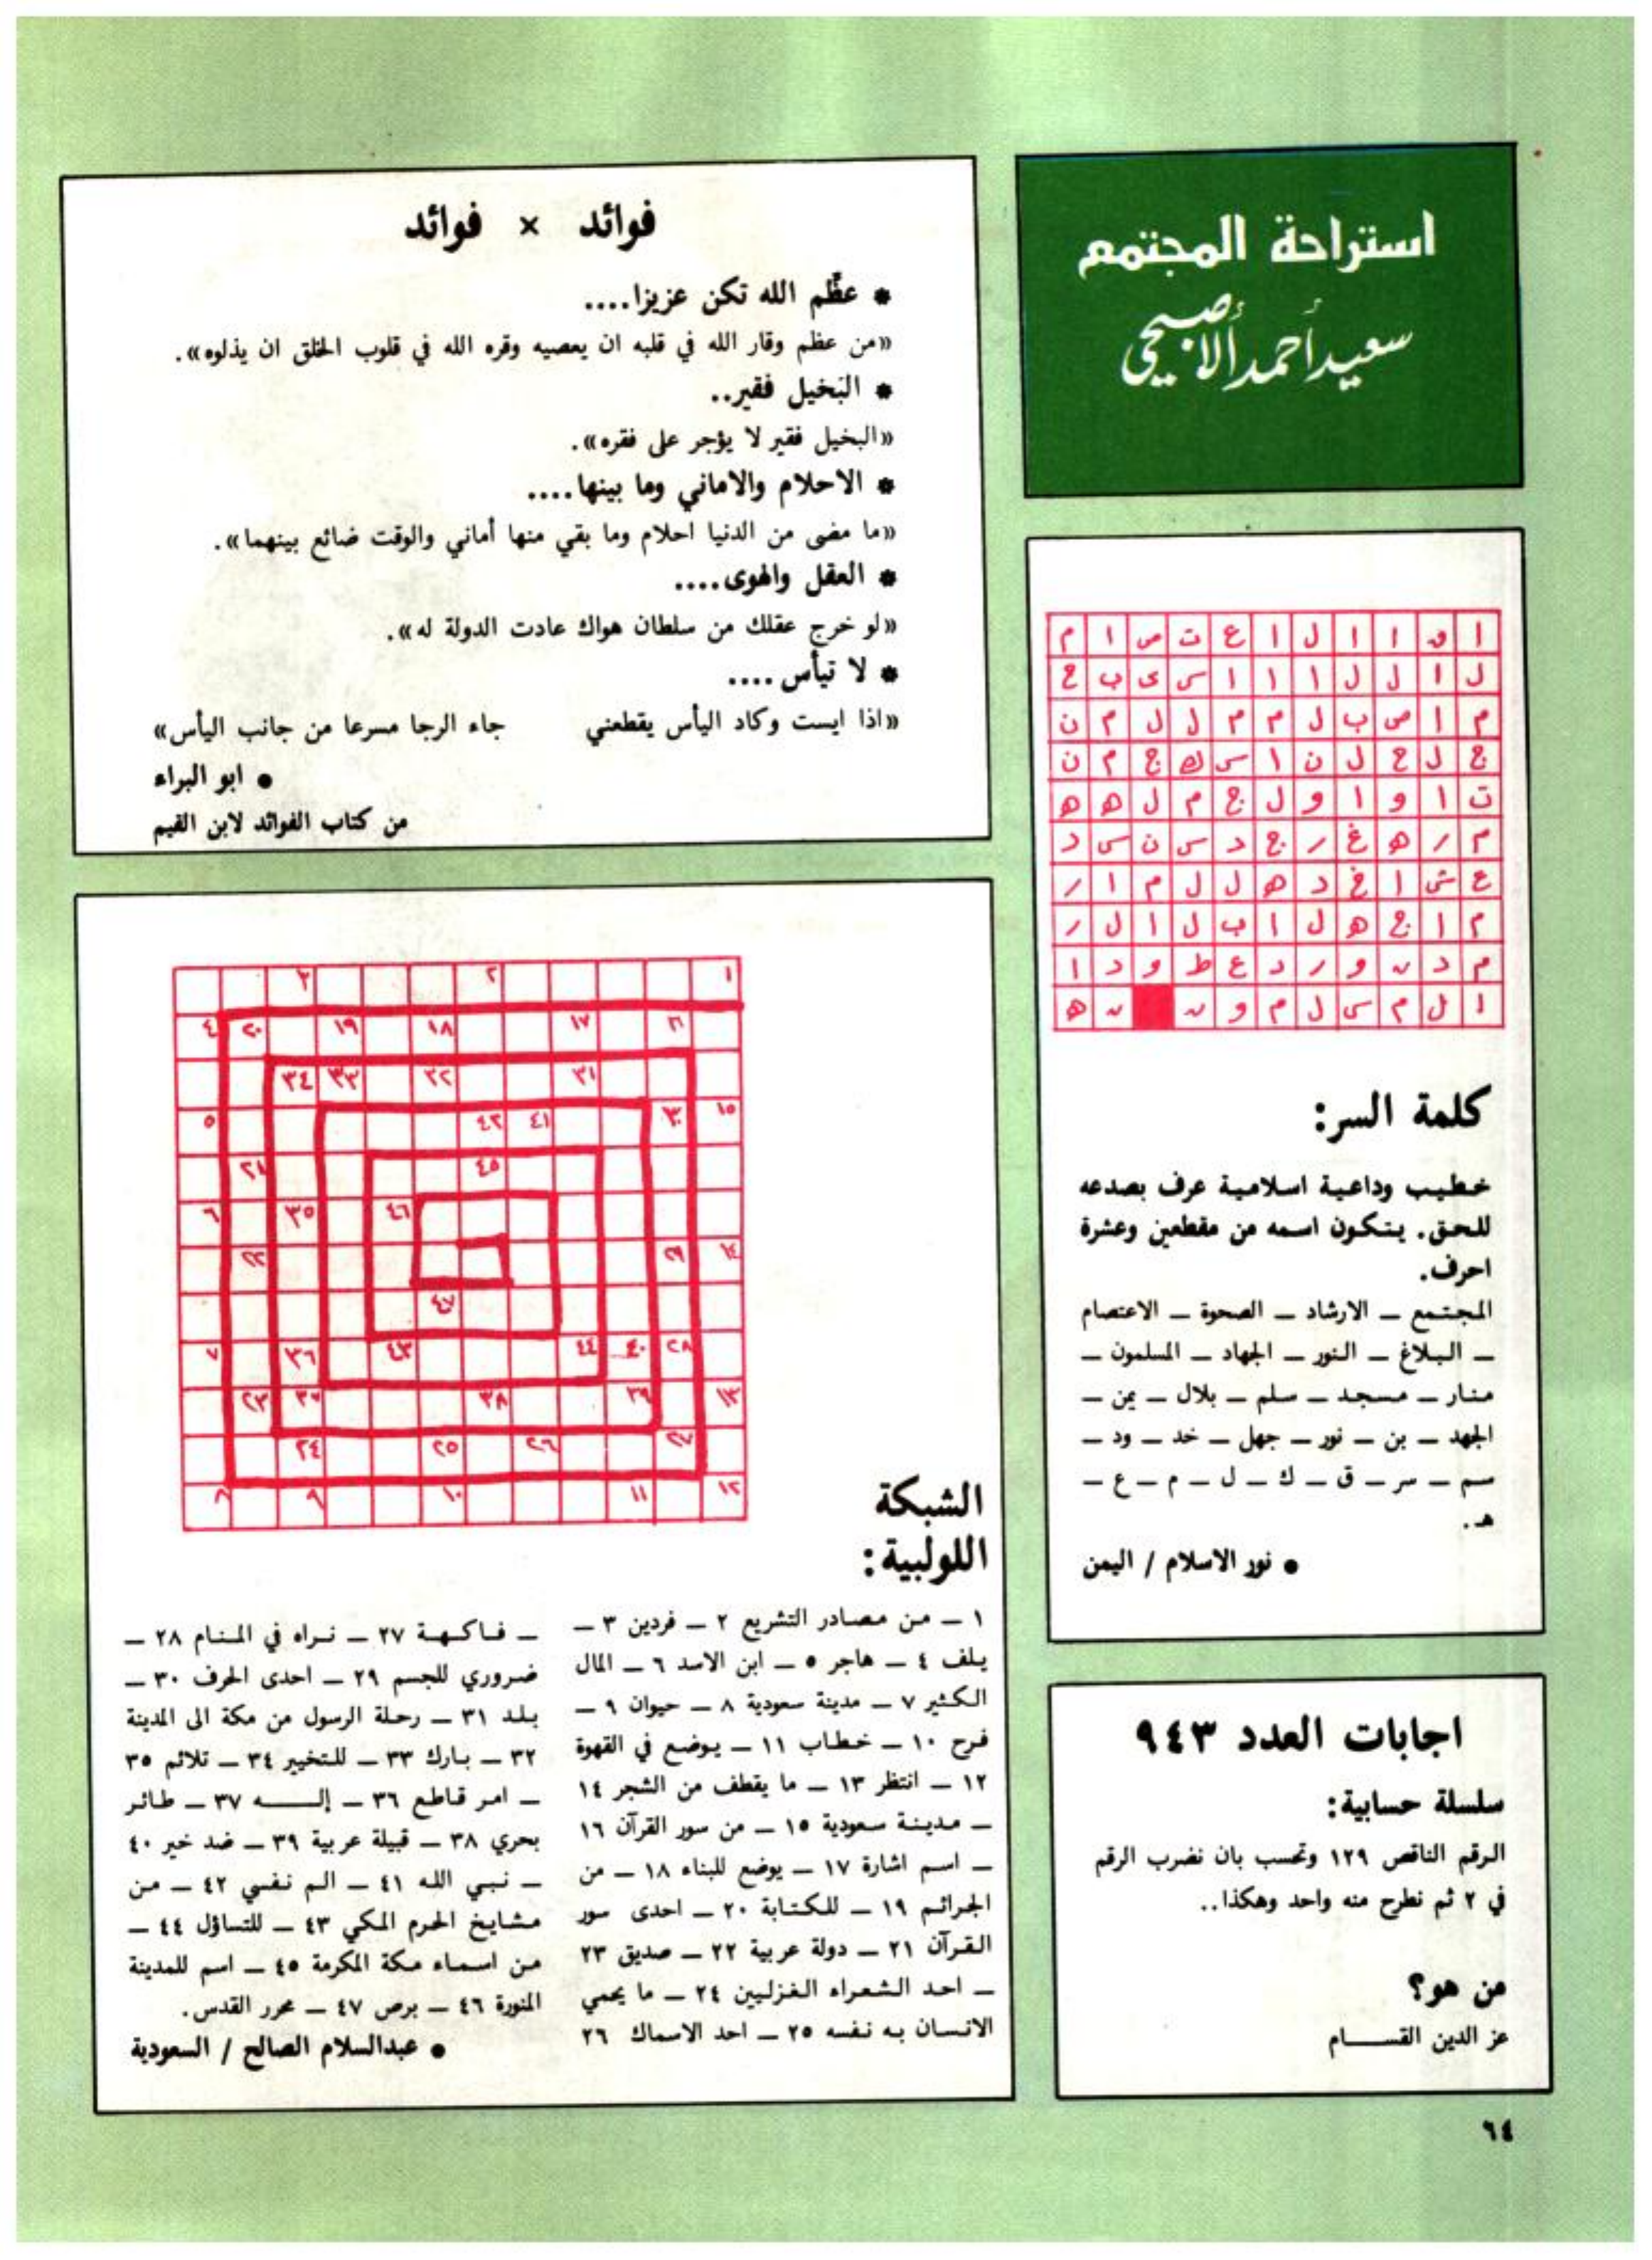 استراحة المجتمع
سعيد أحمد الأصبحي
فوائد × فوائد
* عظّم الله تكن عزيزا....
«من عظم وقار الله في قلبه ان يعصيه وقره الله في قلوب الخلق ان يذلوه».
* البخيل فقير..
«البخيل فقير لا يؤجر على فقره».
* الاحلام والاماني وما بينها....
«ما مضى من الدنيا احلام وما بقي منها أماني والوقت ضائع بينهما».
* العقل والهوى....
«لو خرج عقلك من سلطان هواك عادت الدولة له».
* لا تيأس ....
«اذا ايست وكاد اليأس يقطعني جاء الرجا مسرعا من جانب اليأس»
● ابو البراء
من كتاب الفوائد لابن القيم
ا ق ا ا ل ا ع ت ص ا م
ل ا ل ل ا ا ا س ى ب ع
م ا ص ب ل م م ل ل م ن
ج ل ح ل ن ا س ك ج م ن
ت ا و ا و ل ج م ل ه ه
م ر ه غ ر ج د س ن س د
ع ش ا خ د ه ل ل م ا ر
م ا ج ه ل ا ب ل ا ل ر
م د ن و ر د ع ط و د ا
ا ل م س ل م و ن ن ه
كلمة السر:
خطيب وداعية اسلامية عرف بصدعه
للحق. يتكون اسمه من مقطعين وعشرة
احرف.
المجتمع – الارشاد – الصحوة – الاعتصام
– البلاغ – النور – الجهاد – المسلمون –
منار – مسجد – سلم – بلال – يمن –
الجهد – بن – نور – جهل – خد – ود –
سم – سر – ق – ك – ل – م – ع –
هـ.
● نور الاسلام / اليمن
١ ٢ ٣
٦ ١٧ ١٨ ١٩ ٢٠ ٤
٣١ ٣٢ ٣٣ ٣٤
١٥ ٣٠ ٤١ ٤٢ ٥
٤٥ ٢١
٤٦ ٣٥ ٦
١٤ ٢٩ ٢٢
٤٧
٢٨ ٤٠ ٤٤ ٤٣ ٣٦ ٧
١٣ ٣٩ ٣٨ ٣٧ ٢٣
٢٧ ٢٦ ٢٥ ٢٤
١٢ ١١ ١٠ ٩ ٨
الشبكة
اللولبية:
١ – من مصادر التشريع ٢ – فردين ٣ –
يلف ٤ – هاجر ٥ – ابن الاسد ٦ – المال
الكثير ٧ – مدينة سعودية ٨ – حيوان ٩ –
فرح ١٠ – خطاب ١١ – يوضع في القهوة
١٢ – انتظر ١٣ – ما يقطف من الشجر ١٤
– مدينة سعودية ١٥ – من سور القرآن ١٦
– اسم اشارة ١٧ – يوضع للبناء ١٨ – من
الجرائم ١٩ – للكتابة ٢٠ – احدى سور
القرآن ٢١ – دولة عربية ٢٢ – صديق ٢٣
– احد الشعراء الغزليين ٢٤ – ما يحمي
الانسان به نفسه ٢٥ – احد الاسماك ٢٦
– فاكهة ٢٧ – نراه في المنام ٢٨ –
ضروري للجسم ٢٩ – احدى الحرف ٣٠ –
بلد ٣١ – رحلة الرسول من مكة الى المدينة
٣٢ – بارك ٣٣ – للتخيير ٣٤ – تلائم ٣٥
– امر قاطع ٣٦ – إلـــه ٣٧ – طائر
بحري ٣٨ – قبيلة عربية ٣٩ – ضد خير ٤٠
– نبي الله ٤١ – الم نفسي ٤٢ – من
مشايخ الحرم المكي ٤٣ – للتساؤل ٤٤ –
من اسماء مكة المكرمة ٤٥ – اسم للمدينة
المنورة ٤٦ – برص ٤٧ – محرر القدس.
● عبدالسلام الصالح / السعودية
اجابات العدد ٩٤٣
سلسلة حسابية:
الرقم الناقص ١٢٩ وتحسب بان نضرب الرقم
في ٢ ثم نطرح منه واحد وهكذا..
من هو؟
عز الدين القســـام
٦٤